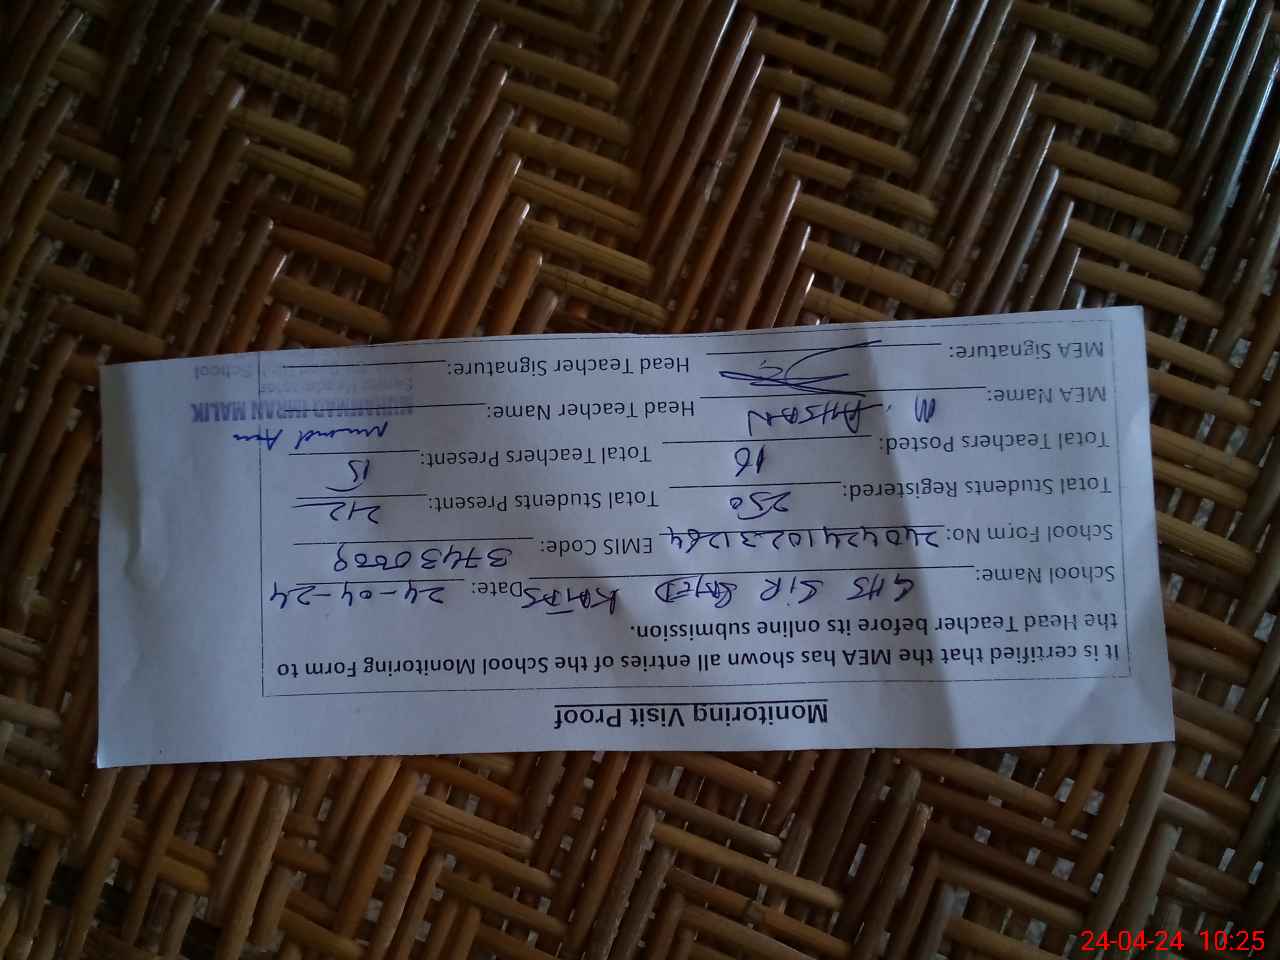 Monitoring Visit Proof
It is certified that the MEA has shown all entries of the School Monitoring Form to
the Head Teacher before its online submission.
School Name: GHS SIR SAYED KATAS Date: 24-04-24
School Form No: EMIS Code: 37430009
Total Students Registered: 250 Total Students Present: 212
Total Teachers Posted: 16 Total Teachers Present: 15
MEA Name: M. AHSAN Head Teacher Name:
MUHAMMAD IMRAN MALIK
MEA Signature: Head Teacher Signature:
School
24-04-24 10:25